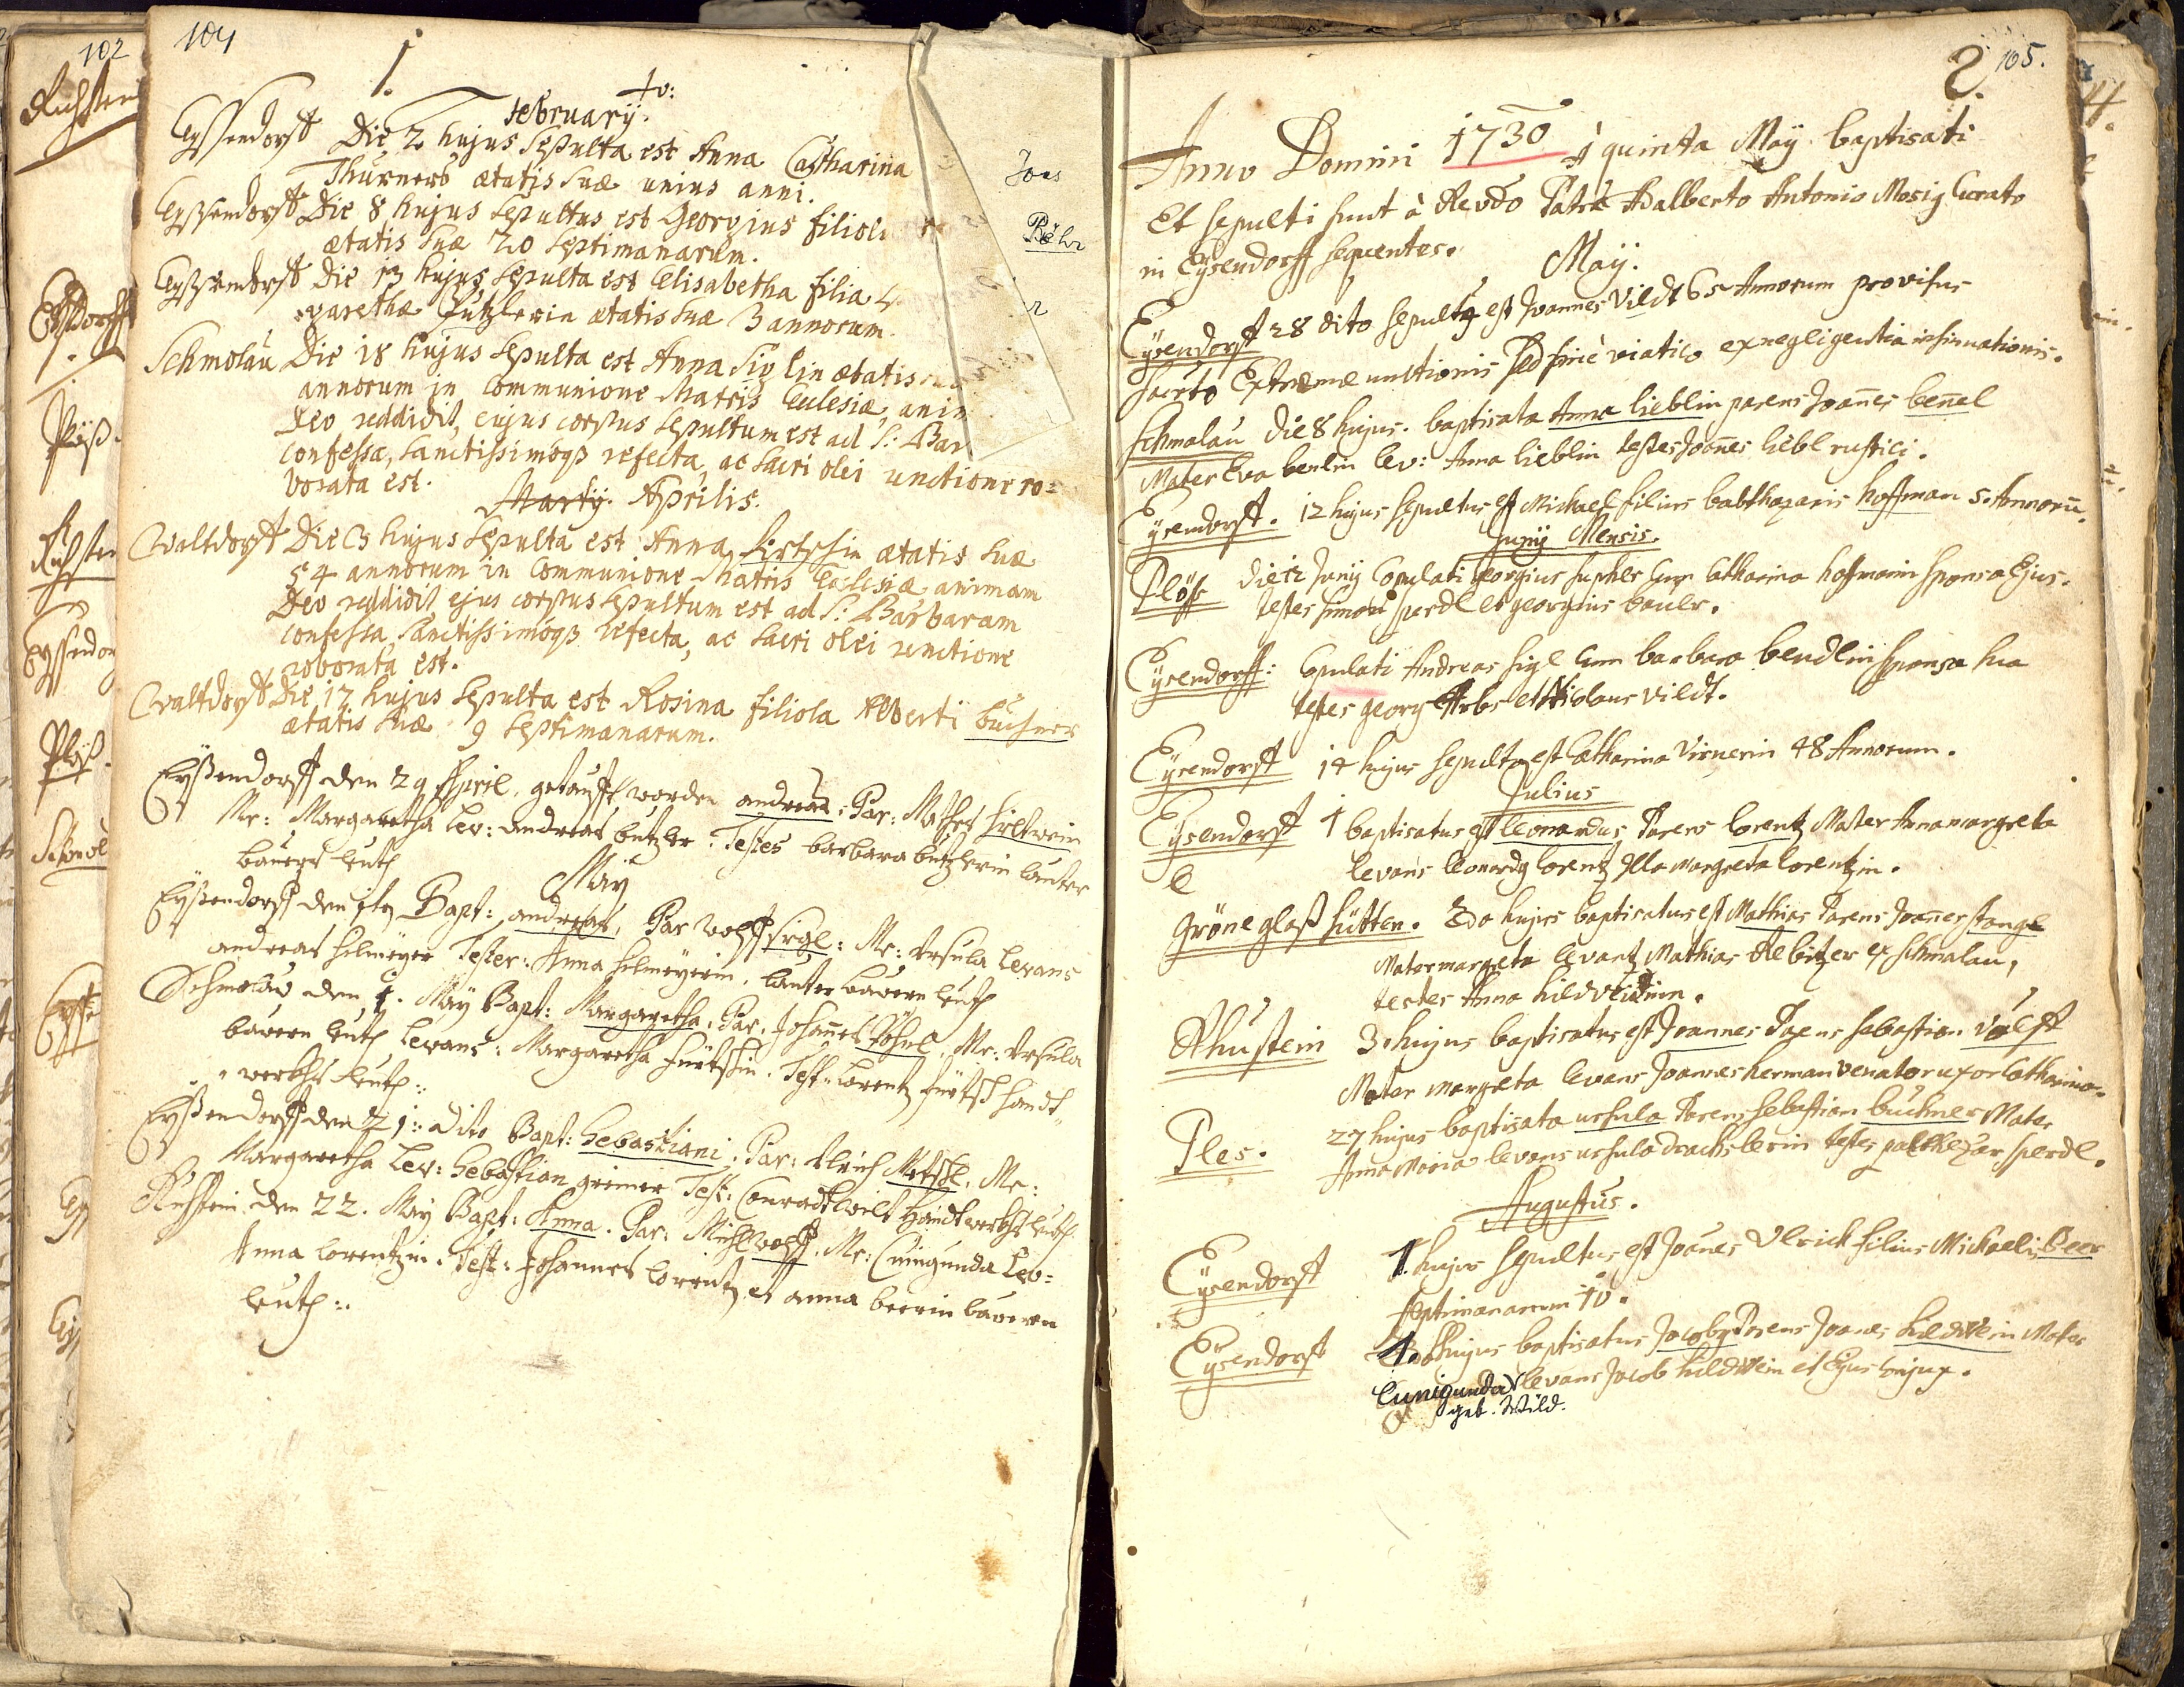 102
Richstein
Eysdorff
Plöß.
Richstein
Eyssendor
Plöß.
104
1.
February.
Eyssendorff Die 2 hujus Sepulta est Anna Catharina
Thurners ætatis suæ unius anni.
Eyssendorff Die 8 hujus Sepultus est Georgius filiol
ætatis suæ 20 septimanarum.
Eyssendorff Die 13 hujus Sepulta est Elisabetha filia
garethæ Putzlerin ætatis suæ 3 annorum.
Schmolau Die 18 hujus Sepulta est Anna Siglin ætatis
annorum in Communione Matris Eclesiæ, anim
Deo reddidit, cujus corpus Sepultum est ad S: Bar
confessa, Sanctissimoqz refecta, ac Sacri olei unctione ro=
borata est.
Marty. Aprilis.
Waltdorff Die 3 hujus Sepulta est Anna Lirtschin ætatis suæ
54 annorum in Communione Matris Ecclesiæ animam
Deo reddidit ejus corpus Sepultum est ad S: Barbaram
confessa, Sanctissimoqz refecta, ac Sacri olei unctione
roborata est.
Waltdorff Die 17 hujus Sepulta est Rosina filiola Alberti Buchner
ætatis suæ 9 Septimanarum.
Eyßendorff den 29 April. getaufft worden andreas, Par: Mathes hiltwein
Mr: Margaretha Lev: andreas butzler. Testes barbara butzlerin lauter
bauers leuth
May
Eyßendorff den Bapt: andreas, Par Wolff Sigl: Mr: Ursula Levans
andreas helmeyer Testes: Anna helmeyerin, lauter bauern leuth
Schmolau den 4. May Bapt: Margaretha. Par. Johannes Mr: Ursula
bauern leuth Levans: Margaretha fürtschin. Test: Lorentz fürtsch handt
werkhs leuth:.
Eyßendorff den 21:. dito Bapt: Sebastiani. Par: Ulrich Mr:
Margaretha Lev: Sebastian grimer Test: Conradt wilt Handtwerkhs leuth
Richstein den 22. May Bapt: Anna. Par: Michl Wolff, Mr: Cunigunda Lev:
Anna Lorentzin. Test: Johannes Lorentz et anna beerin bauern
leuth:.
Joes
Böhr
2. 105.
Anno Domini 1730 à quinta May baptisati
Et sepulti sunt à Revdo Patre Adalberto Antonio Mosig Curato
in Eysendorff sequentes.
May.
Eysendorff 28 dito sepultq est Joannes Vildt 65 Annorum provisus
Sacrto Extremæ unctionis sed sine viatico ex negligentia insinuationis.
Schmalau die 8 hujus. baptisata Anna lieblin parens Joannes bennel
Mater Eva benlin lev: Anna lieblin testes Joannes liebl rustici.
Eysendorff. 12 hujus sepultus est Michael filius balthazaris hoffman 5. Annoru.
Juny Mensis.
Plöss die 11 Juny Copulati georgius Cum Catharina hofmanin sponsa Ejus.
testes simon sperdl et georgius bauer.
Eysendorff: Copulati Andreas sigl Cum barbara bendlin sponsa sua
testes georg Arbs et Nicolaus Vildt.
Eysendorff 14 hujus sepulta est Catharina Virnerin 48 Annorum.
Julius
Eysendorff 1 baptisatus est leonardus Parens lorentz Mater Anna margreta
levans leonardq lorentz Illa Margreta lorentzin.
Gröne glaß hütten. 20 hujus baptisatus est Mathias Parens Joannes stangl
Mater margreta levantz Mathias Rebitzer ex schmalau,
testes Anna hildveidtin.
Rhustein 3 hujus baptisatus est Joannes Parens sebastian Volfft
Mater margreta levans Joannes herman venator uxor Catharina.
Ples. 27 hujus baptisata ursula Parens sebastian buchner Mater
Anna Maria levans ursula drachslerin testes palthezar sperdl.
Augustus.
Eysendorff 1 hujus sepultus est Joanes Ulrich filius Michaelis Beer
septimanarum 10.
Eysendorff hujus baptisatus Jacobq Parens Joanes hildwein Mater
Cunigunda levans Jacob hildwein et Ejus Conjux.
geb. Wild.